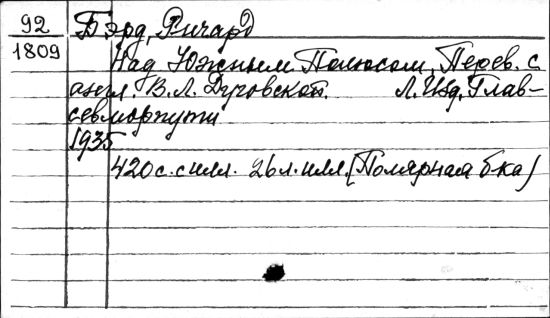 92 Бэрд, Ричард
1809
Над Южным Полюсом. Перев. с
англ В. Л. Дуговской. Л. Изд. Глав-
севморпути
1935
420 с. с илл. 26 л. илл. (Полярная б-ка)